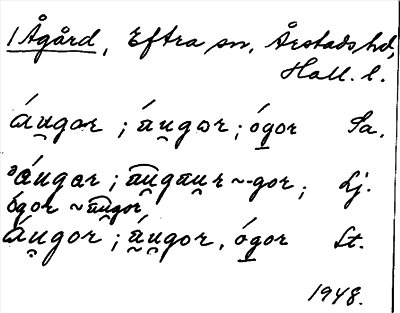 1 Ågård, Eftra sn, Årstads hd,
Hall. l.
áu̯gor ; áu̯gor ; ógor Sa.
áu̯gar ; au̯gau̯r ~ -gor ; Lj.
ógor ~ au̯gor
áu̯gor ; áu̯gor, ógor St.
1948.